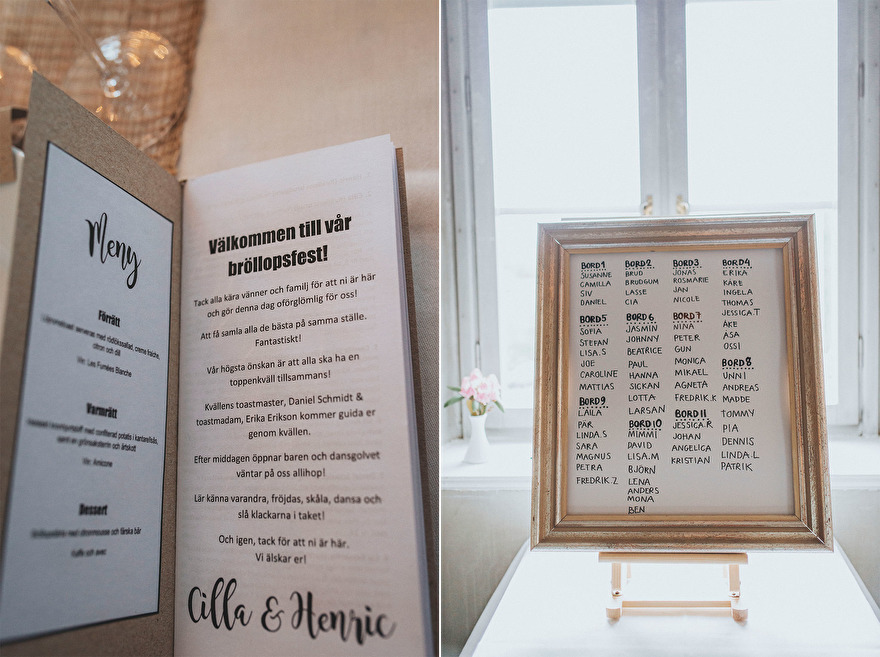 Meny
Förrätt
serveras med rödlökssallad, creme fraiche,
citron och dill
Vin: Les Fumées Blanche
Varmrätt
med confiterad potatis i kantarellsås,
samt en grönsaksterrin och ärtskott
Vin: Amicone
Dessert
med citronmousse och färska bär
Kaffe och avec
Välkommen till vår
bröllopsfest!
Tack alla kära vänner och familj för att ni är här
och gör denna dag oförglömlig för oss!
Att få samla alla de bästa på samma ställe.
Fantastiskt!
Vår högsta önskan är att alla ska ha en
toppenkväll tillsammans!
Kvällens toastmaster, Daniel Schmidt &
toastmadam, Erika Erikson kommer guida er
genom kvällen.
Efter middagen öppnar baren och dansgolvet
väntar på oss allihop!
Lär känna varandra, fröjdas, skåla, dansa och
slå klackarna i taket!
Och igen, tack för att ni är här.
Vi älskar er!
Cilla & Henric
BORD 1
SUSANNE
CAMILLA
SIV
DANIEL
BORD 2
BRUD
BRUDGUM
LASSE
CIA
BORD 3
JONAS
ROSMARIE
JAN
NICOLE
BORD 4
ERIKA
KÅRE
INGELA
THOMAS
JESSICA.T
ÅKE
ÅSA
OSSI
BORD 5
SOFIA
STEFAN
LISA.S
JOE
CAROLINE
MATTIAS
BORD 6
JASMIN
JOHNNY
BEATRICE
PAUL
HANNA
SICKAN
LOTTA
LARSAN
BORD 7
NINA
PETER
GUN
MONICA
MIKAEL
AGNETA
FREDRIK.K
BORD 8
UNNI
ANDREAS
MADDE
TOMMY
PIA
DENNIS
LINDA.L
PATRIK
BORD 9
LAILA
PÄR
LINDA.S
SARA
MAGNUS
PETRA
FREDRIK.Z
BORD 10
MIMMI
DAVID
LISA.M
BJÖRN
LENA
ANDERS
MONA
BEN
BORD 11
JESSICA.R
JOHAN
ANGELICA
KRISTIAN